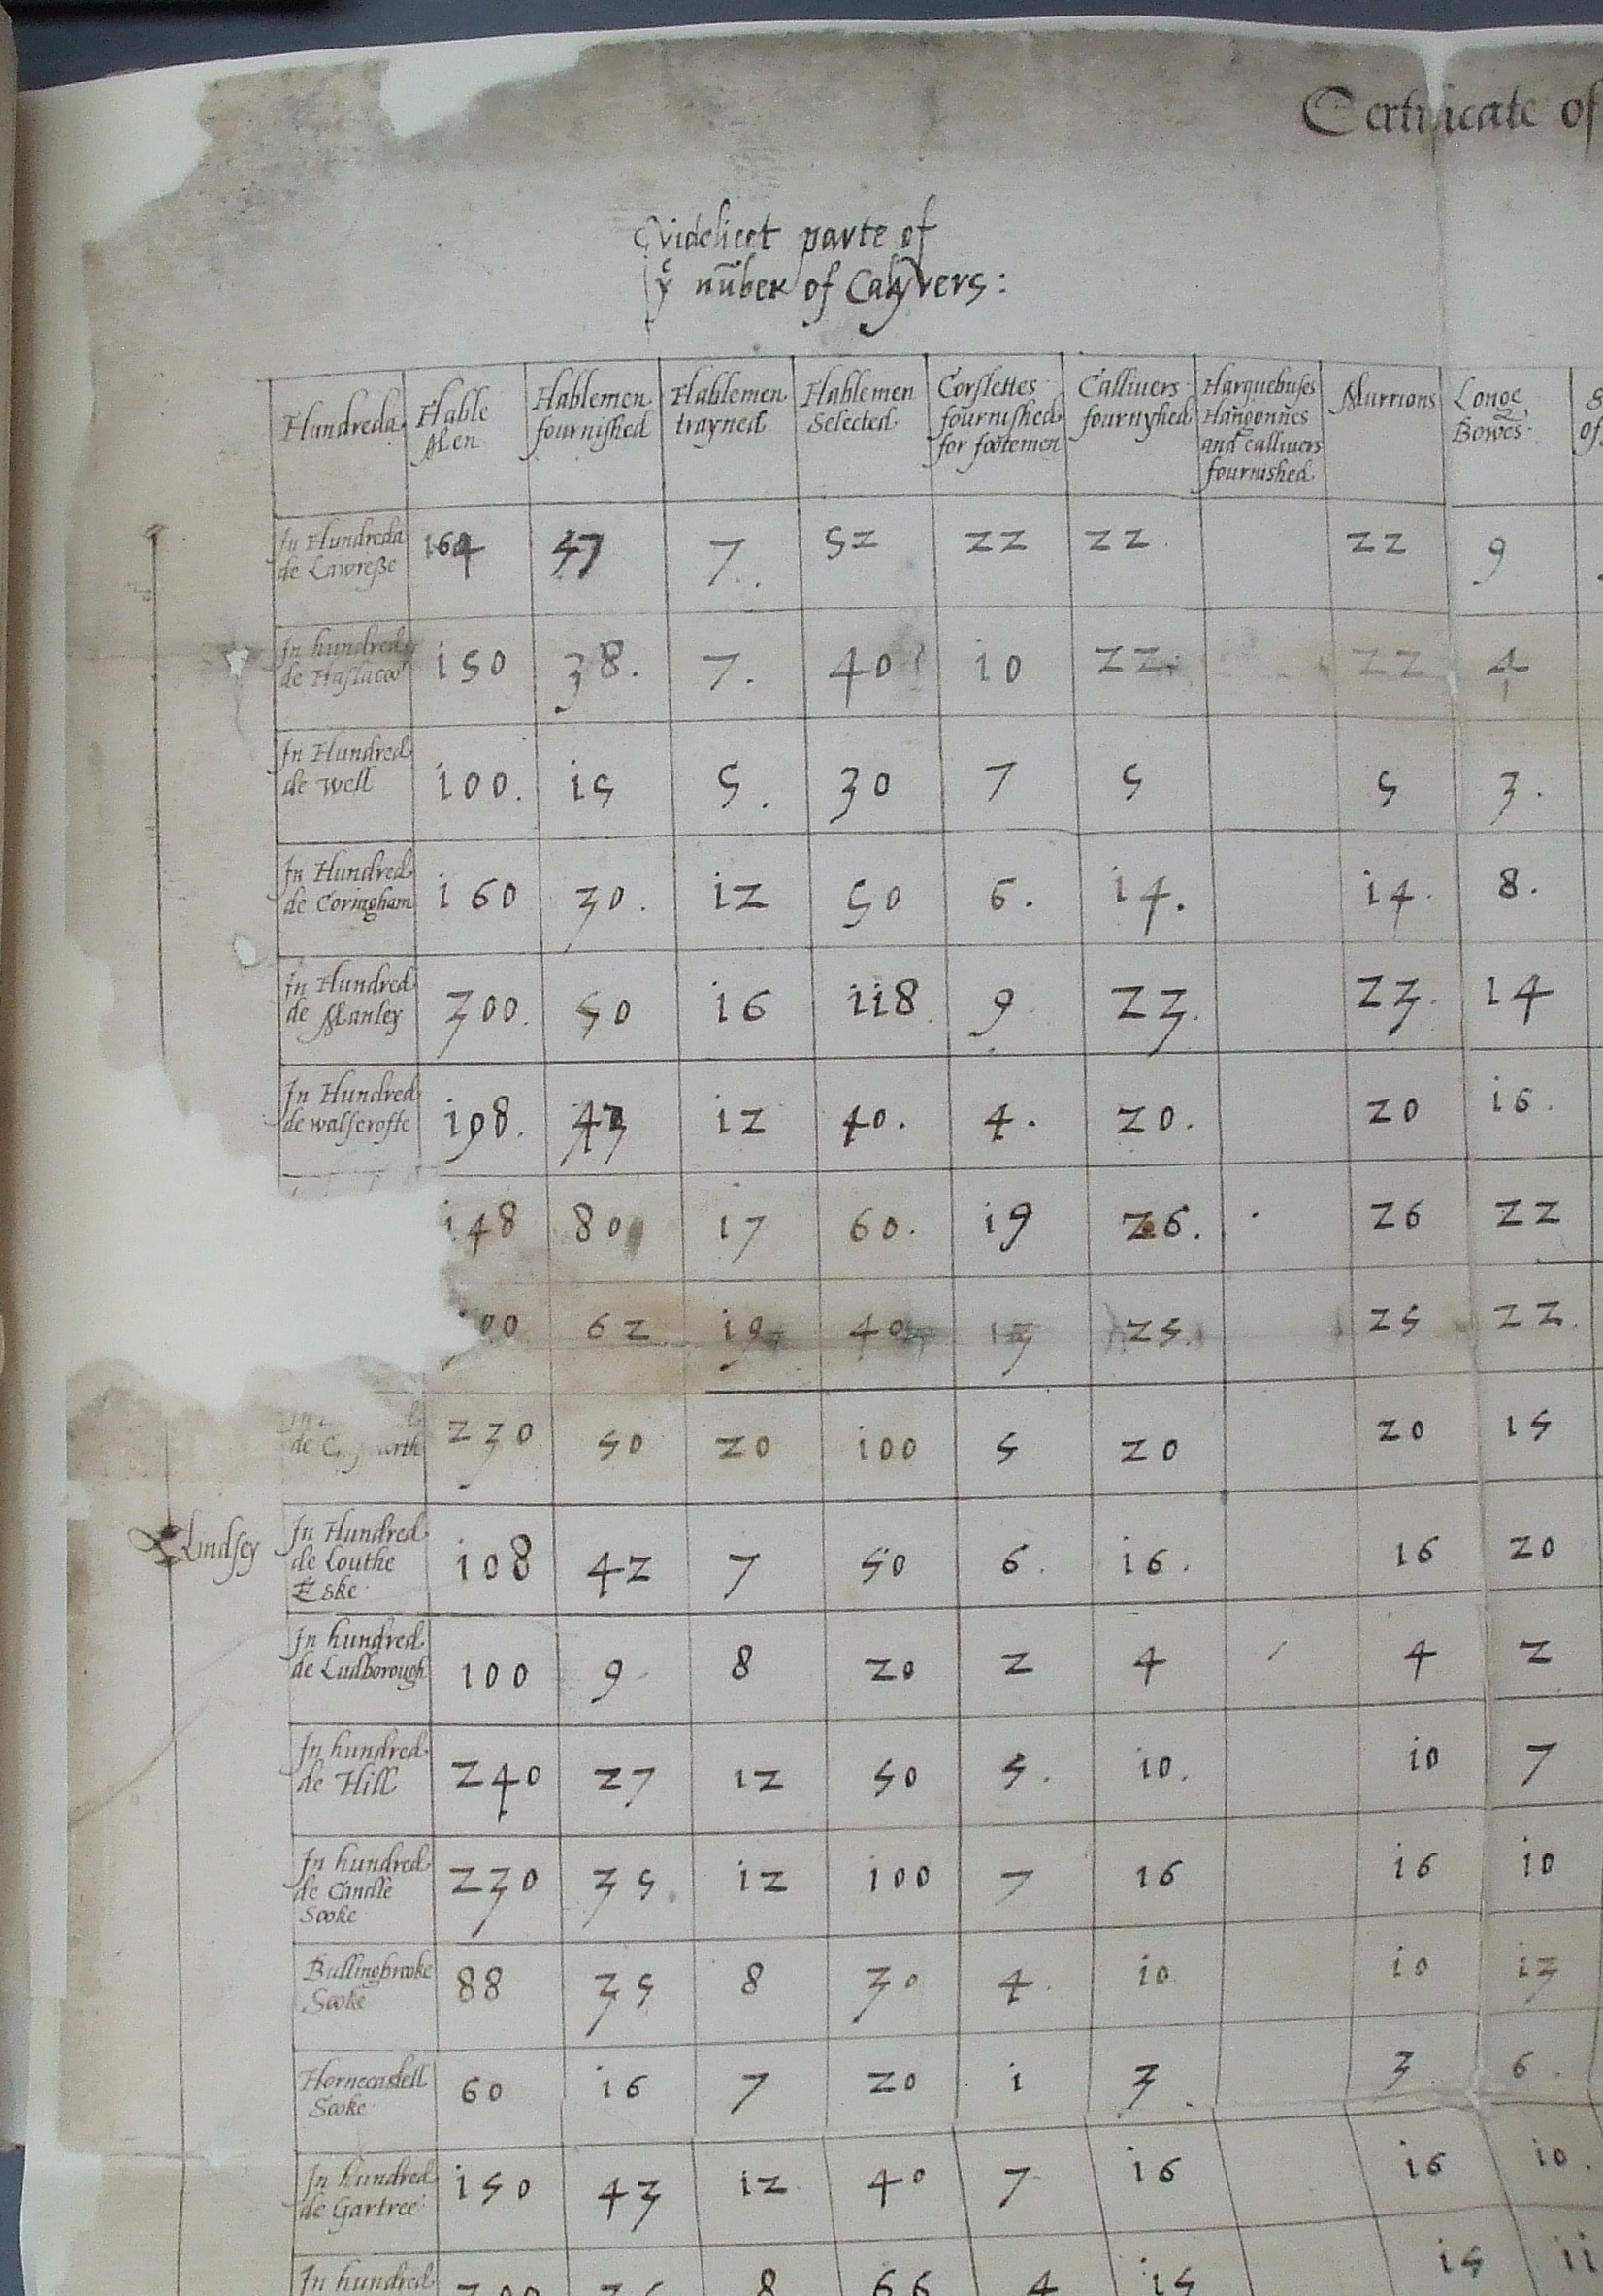 Certificate of
Videlicet parte of
yᵉ nūber of Calyvers:
Hundreda Hable Men Hablemen fournished Hablemen trayned Hablemen Selected Corslettes fournished for footemen Calliuers fournyshed Harquebuses Hangonnes and calliuers fournished Murrions Longe Bowes
In Hundreda de Lawresse 164 47 7. 52 22 22. 22 9
In hundred de Haslacoo 150 38. 7. 40 10 22. 22 4
In Hundred de Well 100. 15 5. 30 7 5 5 3.
In Hundred de Coringham 160 30. 12 50 6. 14. 14. 8.
In Hundred de Manley 300. 50 16 118. 9. 23. 23. 14
In Hundred de Walscrofte 198. 43 12 40. 4. 20. 20 16.
148 80 17 60. 19 26. 26 22
00 62 19 40 13 25. 25 22.
de 230 50 20 100 5 20 20 15
Lindsey In Hundred de Louthe Eske 108 42 7 50 6. 16. 16 20
In hundred de Ludborough 100 9 8 20 2 4 4 2
In hundred de Hill 240 27 12 50 5. 10. 10 7
In hundred de Candle Sooke 230 35. 12 100 7 16 16 10
Bullingbrooke Sooke 88 35 8 30 4. 10 10 13
Hornecastell Sooke 60 16 7 20 1 3 3. 6.
In hundred de Gartree 150 43 12 40 7 16 16 10.
In hundred 8 66 4 15 15 11